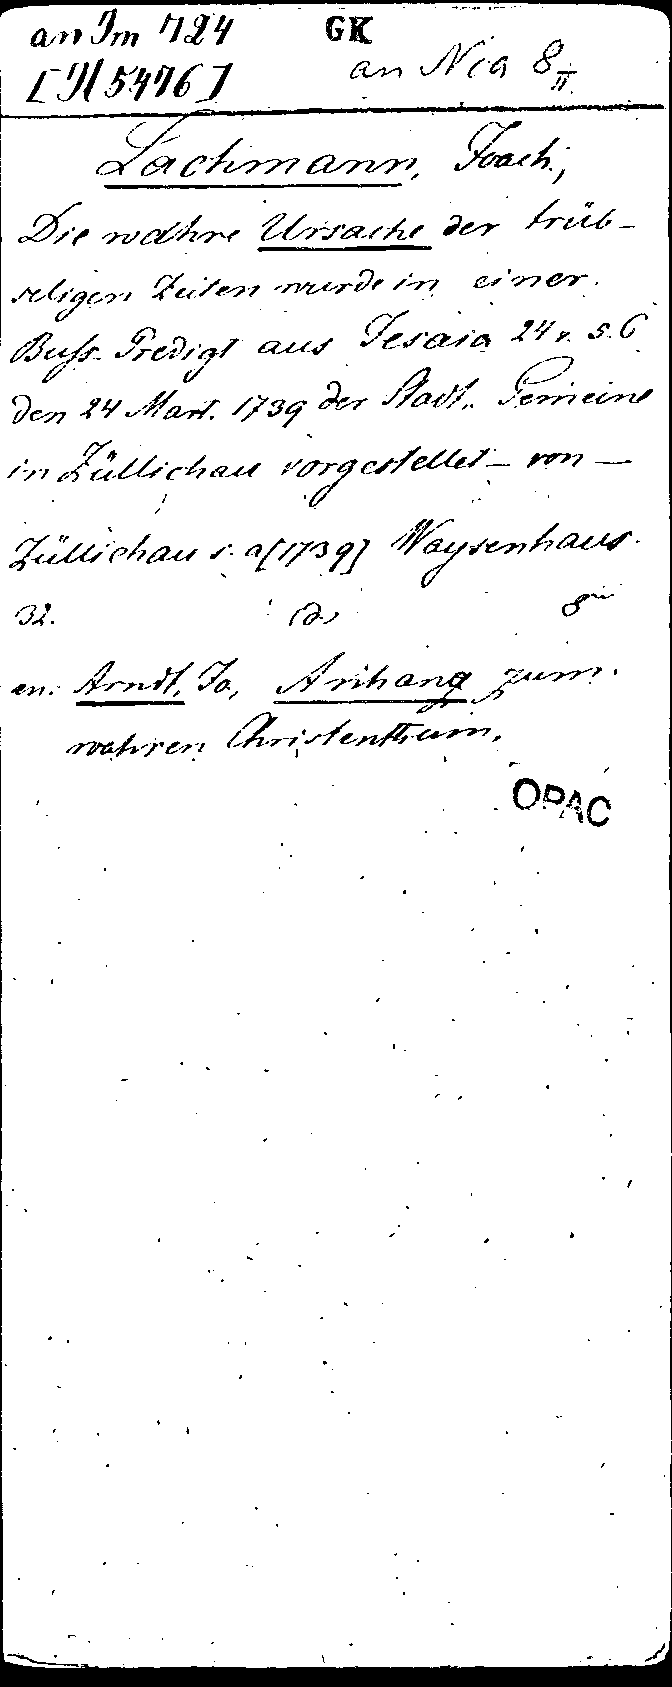 an Im 724 GK
[N 5476] an Nia 8/II
Lachmann, Joach.,
Die wahre Ursache der trüb-
seligen Zeiten wurde in einer
Buss-Predigt aus Jesaia 24 v. 5. 6
den 24 Mart. 1739 der Stadt-Gemeine
in Züllichau vorgestellet – von –
Züllichau s. a [1739] Waysenhaus.
32. (d.) 8°
an: Arndt, Jo, Anhang zum
wahren Christenthum.
OPAC